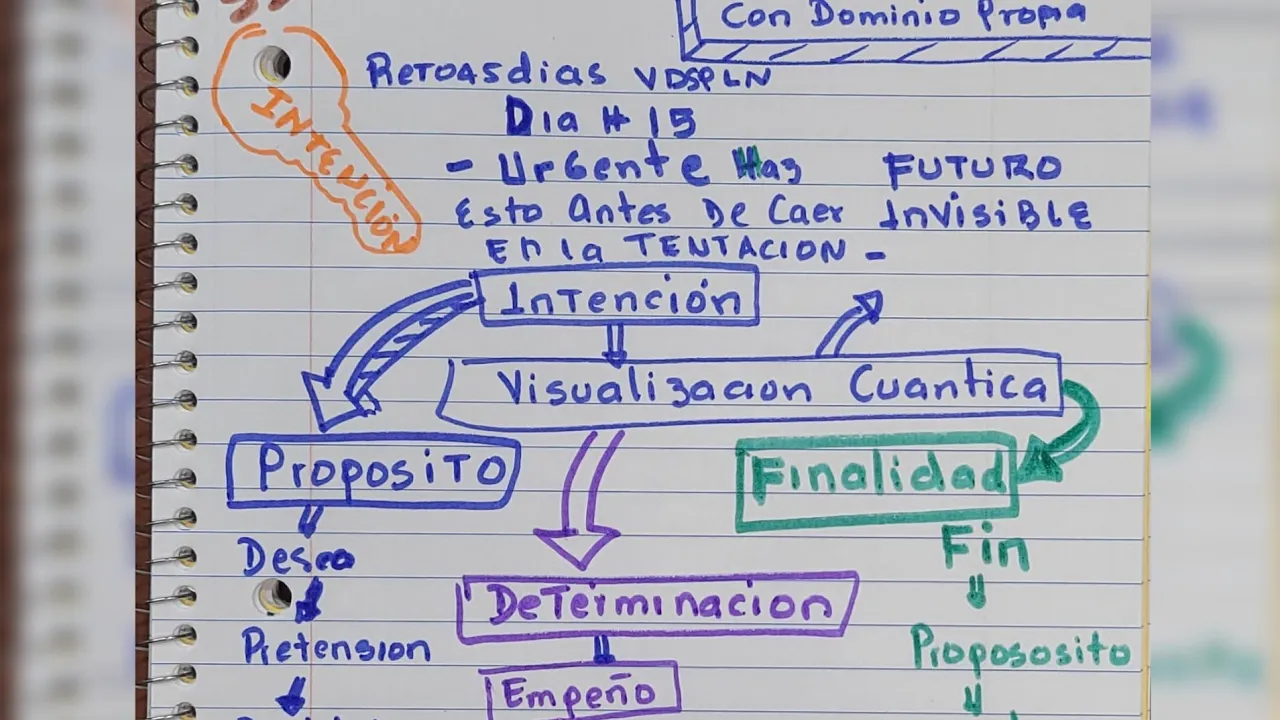 Con Dominio Propia
INTENCIÓN
RETO45dias VDSPLN
Dia # 15
- Urgente Haz
Esto Antes De Caer
En la TENTACION -
FUTURO
INVISIBLE
Intención
Visualizacion Cuantica
Proposito
Finalidad
Deseo
Fin
Determinacion
Pretension
Propososito
Empeño